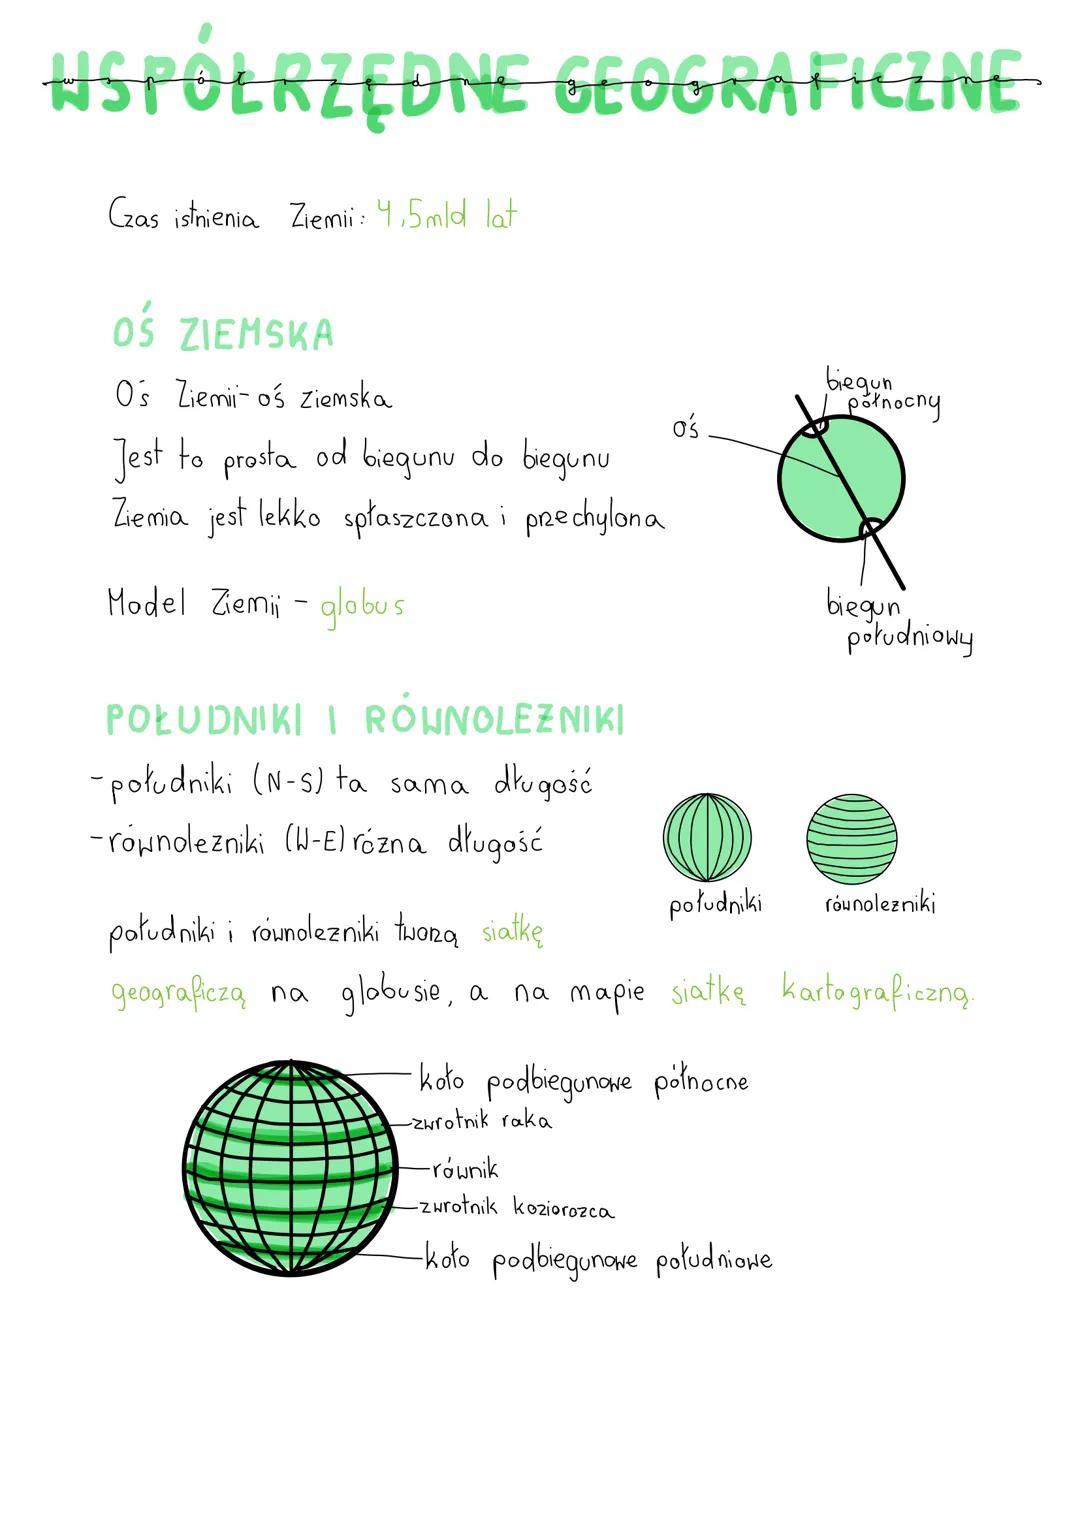 WSPÓŁRZĘDNE GEOGRAFICZNE
współrzędne geograficzne
Czas istnienia Ziemii: 4,5mld lat
OŚ ZIEMSKA
Oś Ziemii- oś ziemska
Jest to prosta od biegunu do biegunu
Ziemia jest lekko spłaszczona i przechylona
biegun
północny
oś
biegun
południowy
Model Ziemii - globus
POŁUDNIKI I RÓWNOLEŻNIKI
-południki (N-S) ta sama długość
-równoleżniki (W-E) różna długość
południki
równoleżniki
południki i równoleżniki tworzą siatkę
geograficzą na globusie, a na mapie siatkę kartograficzną.
koło podbiegunowe północne
zwrotnik raka
równik
zwrotnik koziorożca
koło podbiegunowe południowe